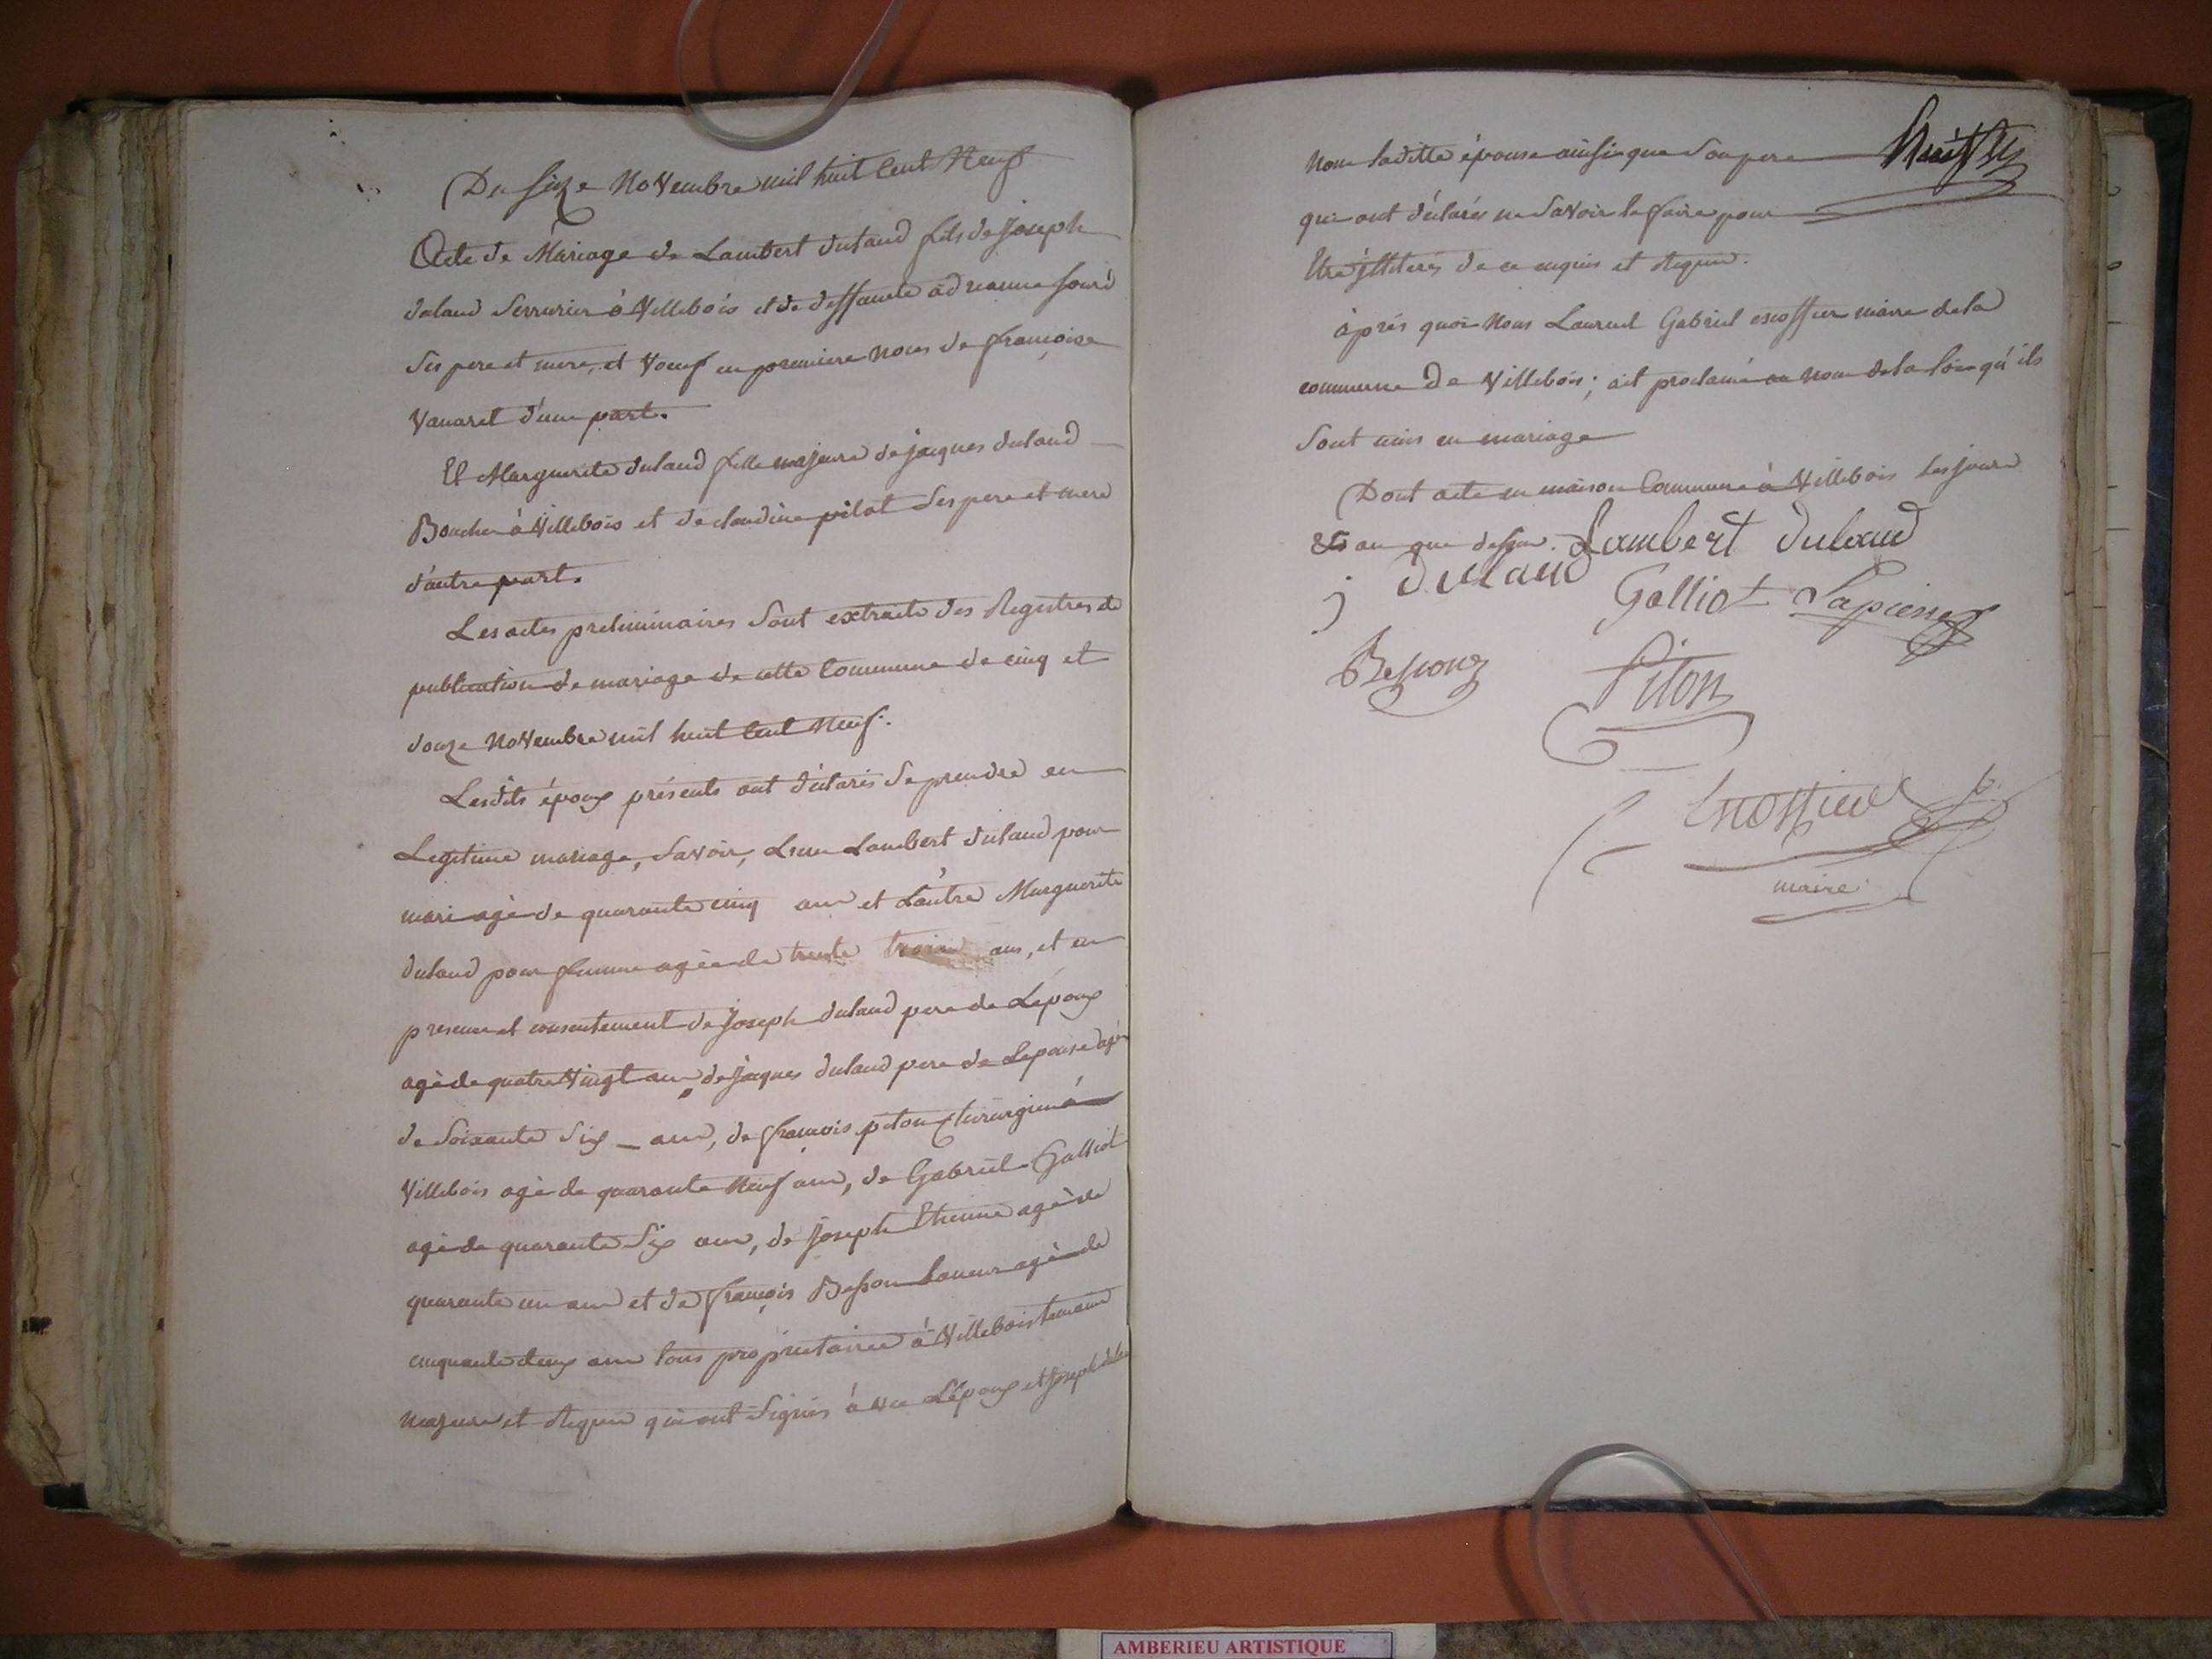 Du seize Novembre mil huit Cent Neuf
Acte de Mariage de Lambert dulaud fils de Joseph
dulaud Serrurier à Villebois et de deffunte adrianne
Ses pere et mere, et Voeuf en premiere noces de françoise
Vanaret d'une part.
Et Marguerite dulaud fille majeure de jacques dulaud
Boucher à Villebois et de claudine pilat Ses pere et mere
d'autre part.
Les actes preliminaires Sont extraits des Registres de
publication de mariage de cette Commune de cinq et
douze Novembre mil huit Cent Neuf.
Lesdits époux présents ont déclarés Se prendre en
Legitime mariage, Savoir, L'un Lambert dulaud pour
mari agé de quarante cinq ans et L'autre Marguerite
dulaud pour femme agée de trente trois ans, et en
presence et consentement de Joseph dulaud pere de L'epoux
agé de quatre Vingt ans, de Jacques dulaud pere de L'epouse agé
de Soixante Six ans, de françois piton Chirurgien à
Villebois agé de quarante Neuf ans, de Gabriel Galliot
agé de quarante Six ans, de Joseph Etienne agé de
quarante un ans et de françois Besson agé de
cinquante deux ans tous proprietaires à Villebois temoins
majeurs et Requis qui ont Signés avec L'époux et Joseph
Non laditte épouse ainsi que Son pere
qui ont déclarés ne Savoir le faire pour
Etre jlliterés de ce enquis et Requis.
après quoi Nous Laurent Gabriel escoffier maire de la
commune De Villebois; ait proclamé au nom de la loi qu'ils
Sont unis en mariage
Dont acte en maison Commune à Villebois Les jour
et an que dessus. Lambert dulaud
j dulaud
Galliot Lapierre
Besson
Piton
Escoffier
maire
AMBERIEU ARTISTIQUE